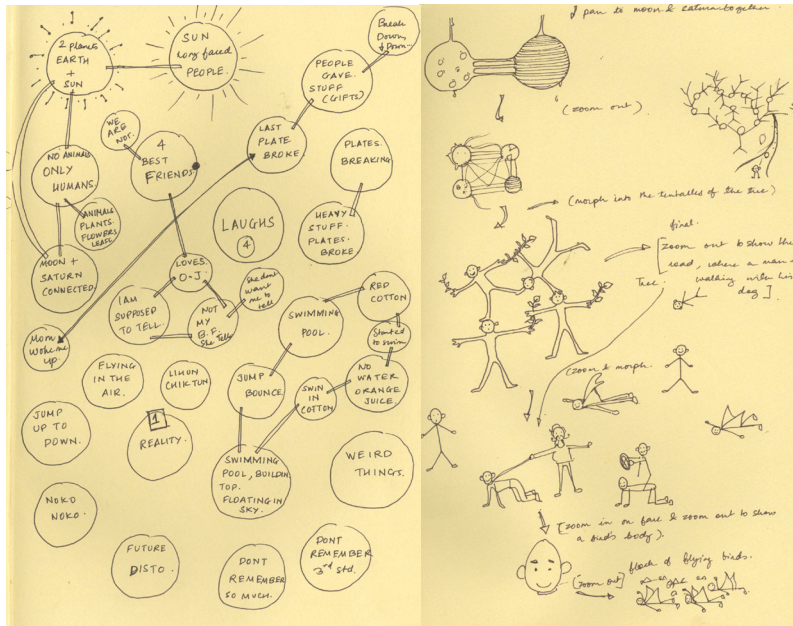 2 planets
EARTH
+
SUN
SUN
Long faced
PEOPLE.
Break
Down
PEOPLE
GAVE
STUFF
(GIFTS)
WE
ARE
NOT.
4
BEST
FRIENDS
LAST
PLATE
BROKE.
PLATES.
BREAKING
NO ANIMALS
ONLY
HUMANS
ANIMALS
PLANTS.
FLOWERS
LEAFS
LAUGHS
4
HEAVY
STUFF.
PLATES.
BROKE.
MOON +
SATURN
CONNECTED
LOVES.
O-J.
She dont
want
me to
tell
I AM
SUPPOSED
TO TELL.
NOT
MY
B.F.
She Tells
SWIMMING
POOL.
RED
COTTON
Started
to swim
Mom
woke me
up.
FLYING
IN THE
AIR.
LIMON
CHIKTUN
JUMP
BOUNCE.
SWIN
IN
COTTON
NO
WATER
ORANGE
JUICE.
JUMP
UP TO
DOWN.
1
REALITY.
SWIMMING
POOL, BUILDIN
TOP.
FLOATING IN
SKY.
WEIRD
THINGS.
NOKO
NOKO.
FUTURE
DISTO.
DONT
REMEMBER
SO MUCH.
DONT
REMEMBER
3rd std.
I pan to moon & saturn together
(zoom out)
(morph into the tentacles of the tree)
final.
[zoom out to show the
road, where a man &
Tree. walking with his
dog].
(zoom & morph.
[zoom in on face & zoom out to show
a birds body).
[zoom out]
flock of flying birds.